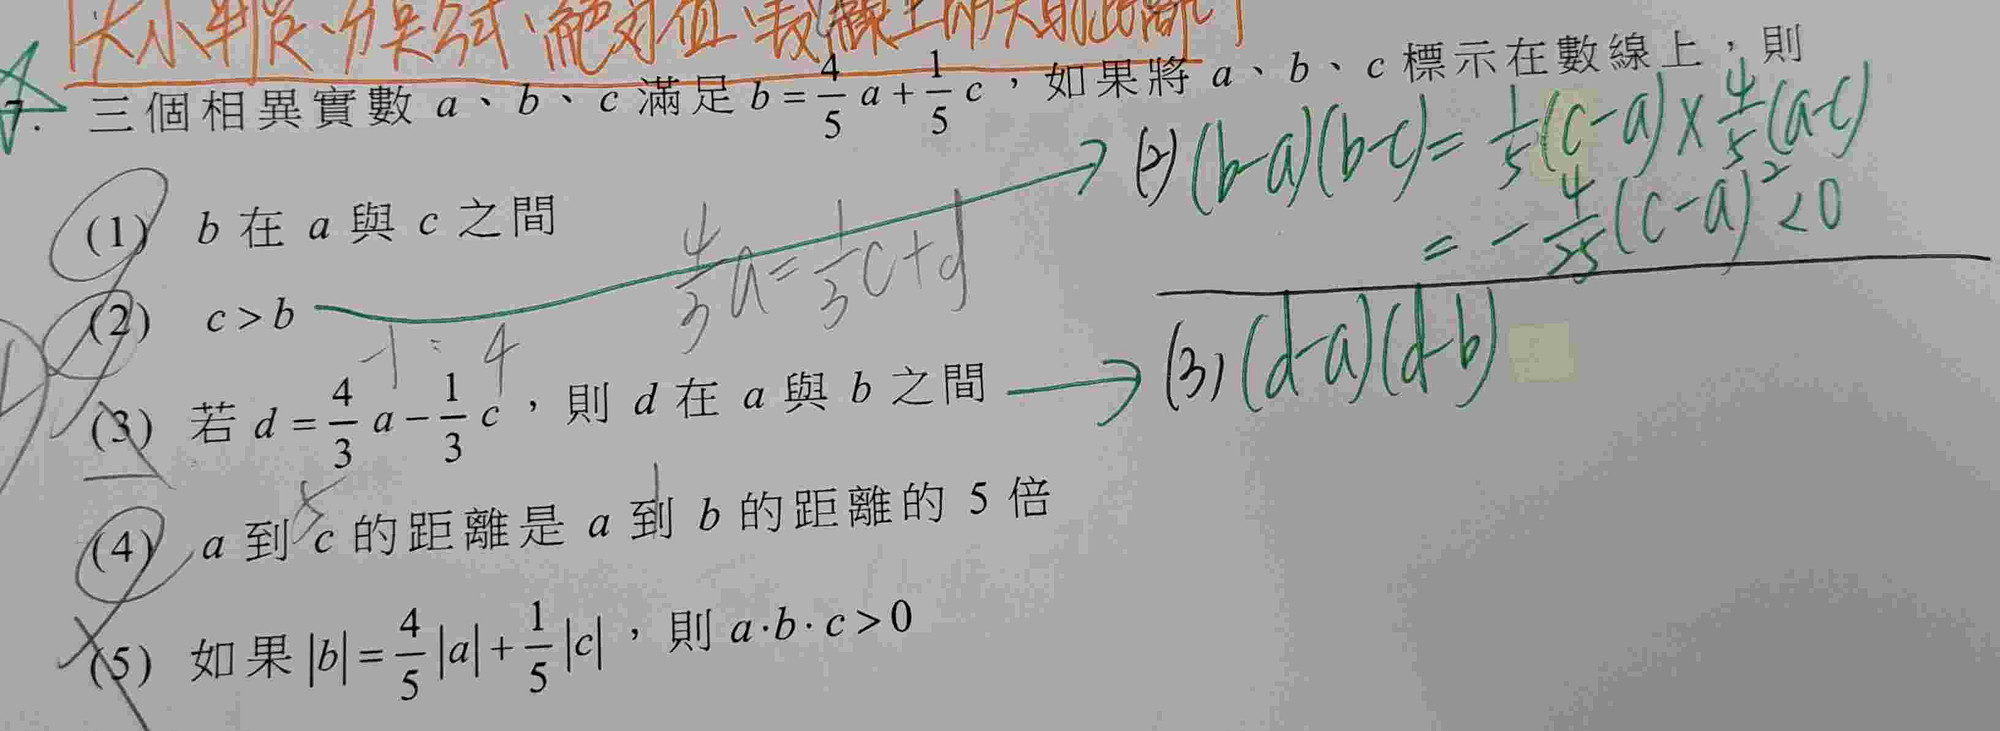 大小判定、分点公式、絕對值、數線上兩点的距離
7. 三個相異實數 a、b、c 滿足 b = 4/5 a + 1/5 c，如果將 a、b、c 標示在數線上，則
(1) b 在 a 與 c 之間
(2) c > b
(3) 若 d = 4/3 a − 1/3 c，則 d 在 a 與 b 之間
(4) a 到 c 的距離是 a 到 b 的距離的 5 倍
(5) 如果 |b| = 4/5 |a| + 1/5 |c|，則 a·b·c > 0
4/3 a = 1/3 c + d
-1 : 4
5
1
(2) (b-a)(b-c) = 1/5 (c-a) × 4/5 (a-c)
= - 4/25 (c-a)² < 0
(3) (d-a)(d-b)